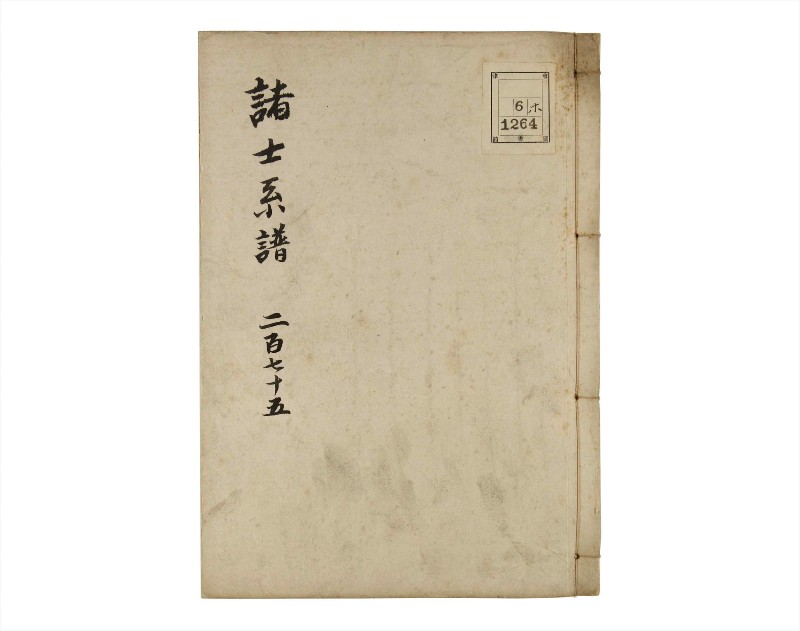 諸士系譜 二百七十五
6 ホ
1264